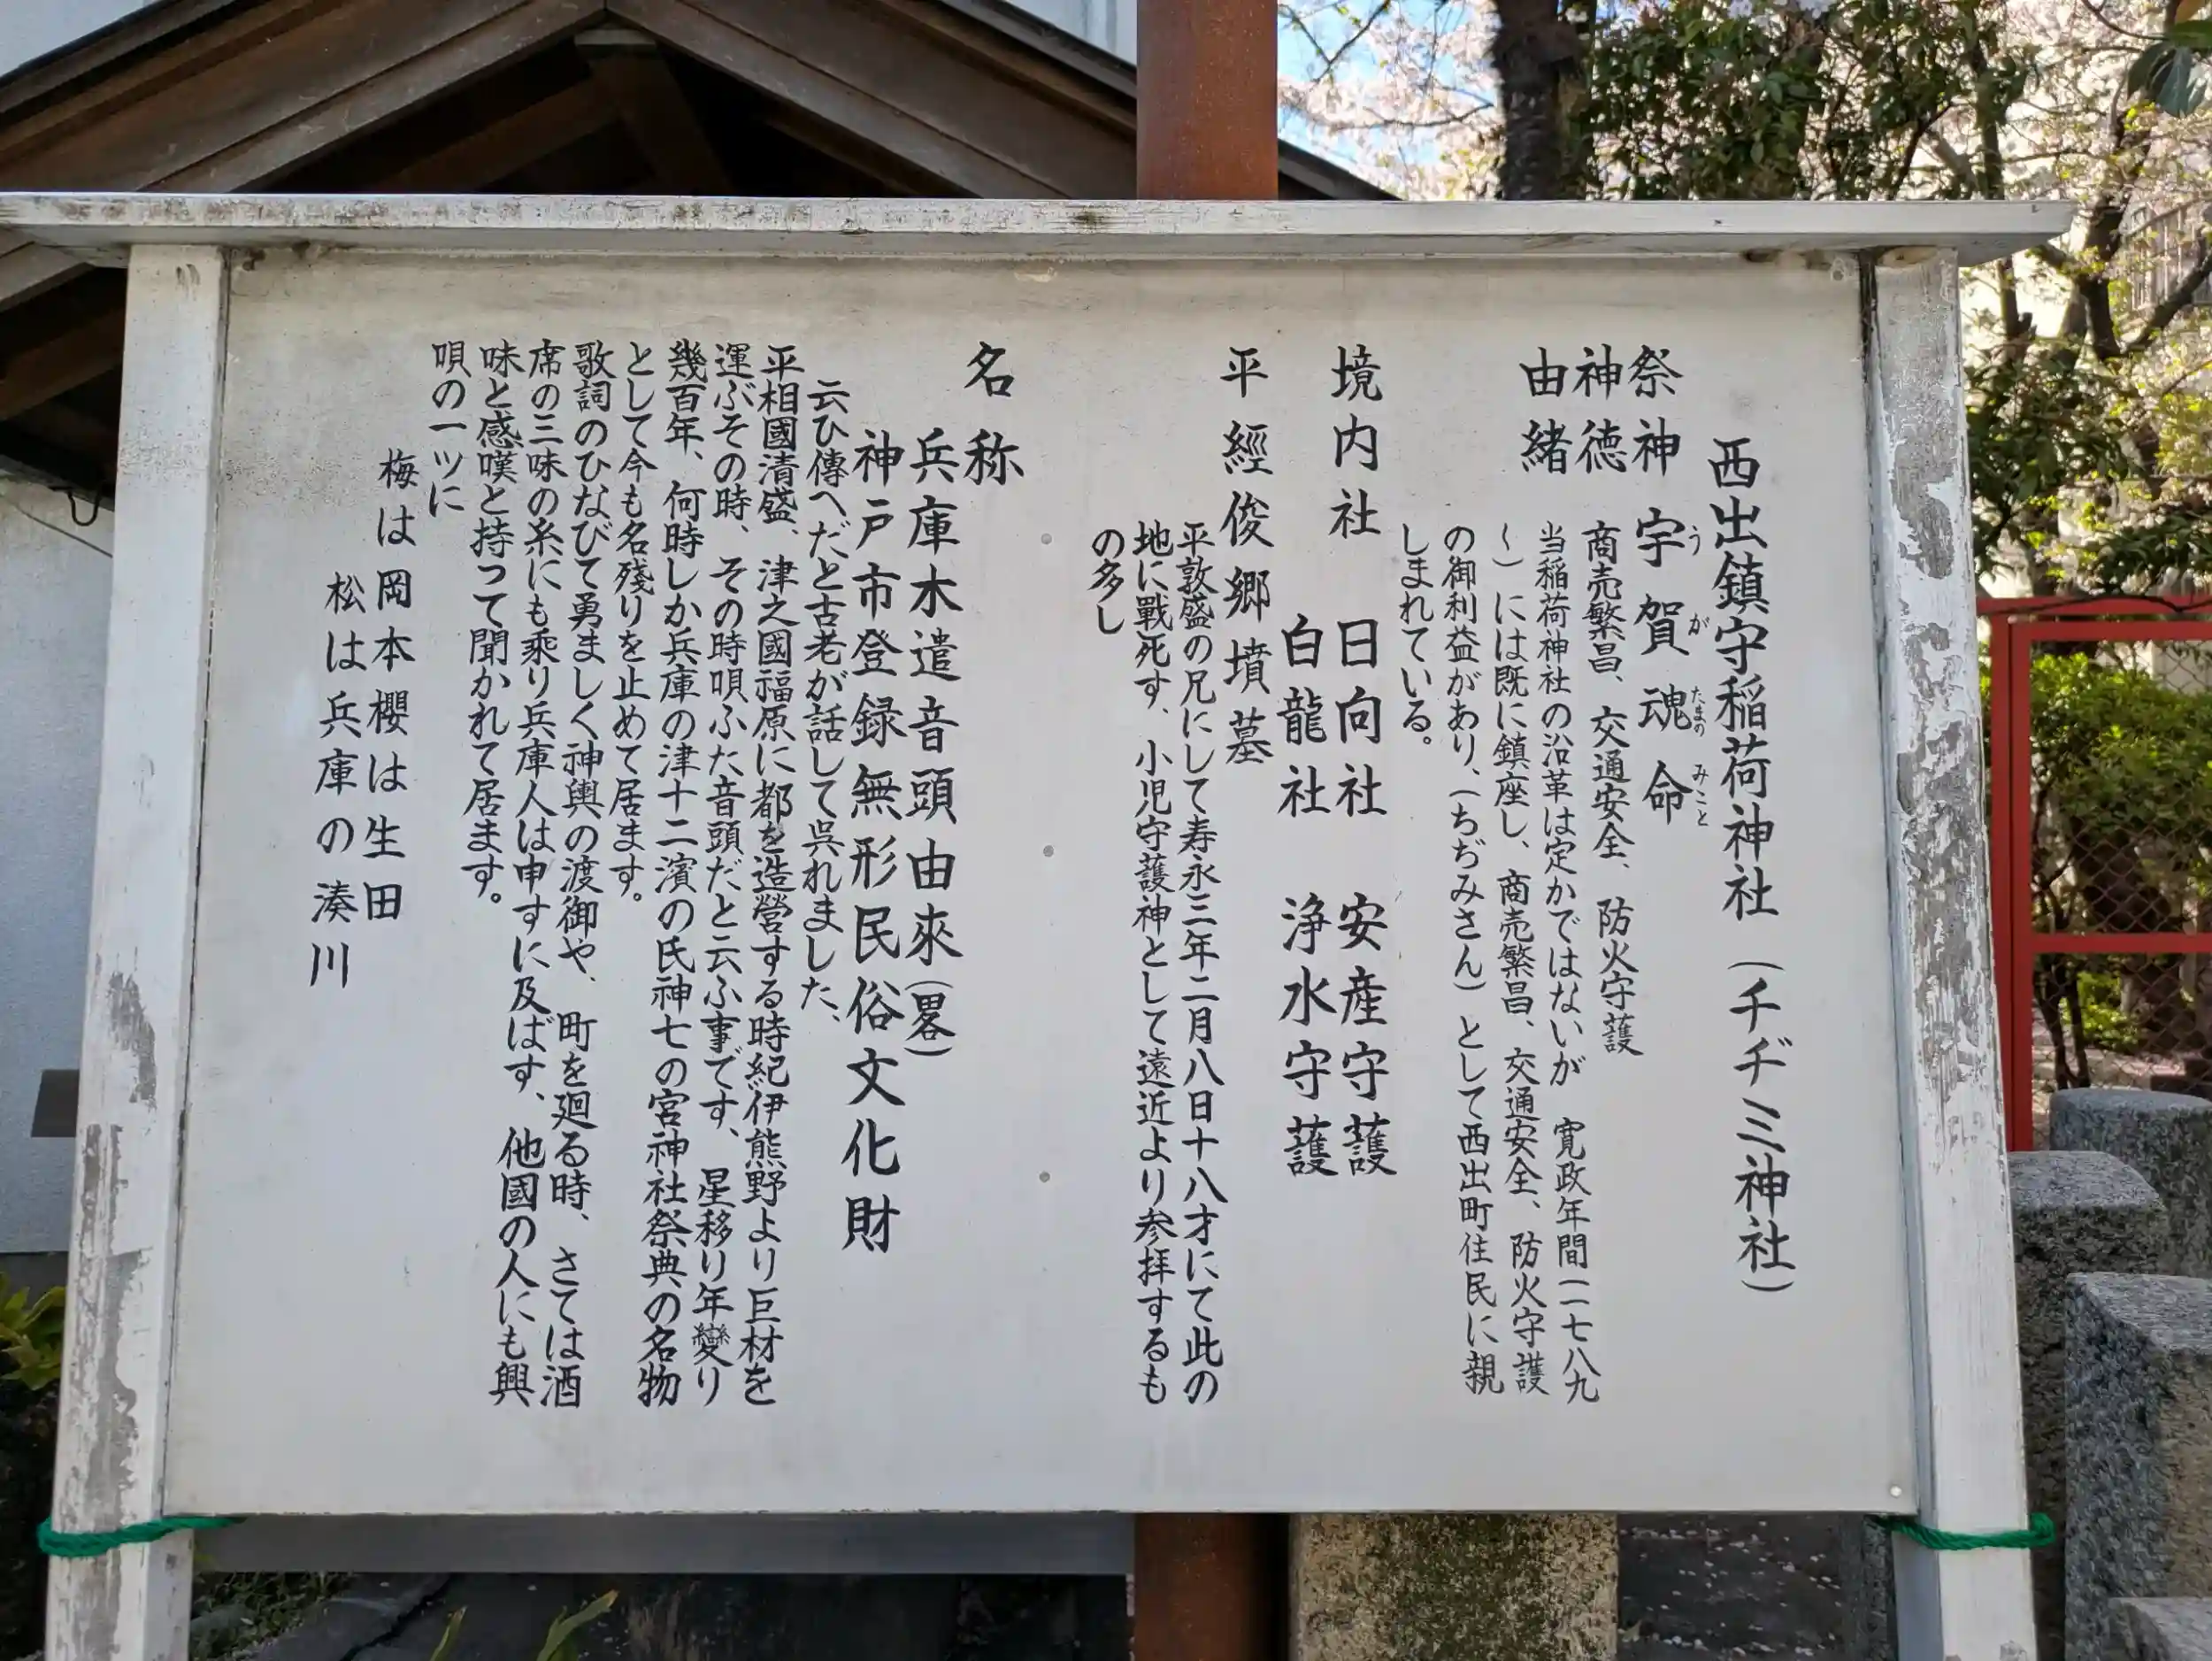 西出鎮守稲荷神社（チヂミ神社）
祭神 宇賀魂命
うがたまのみこと
神徳 商売繁昌、交通安全、防火守護
由緒 当稲荷神社の沿革は定かではないが 寛政年間（一七八九
〜）には既に鎮座し、商売繁昌、交通安全、防火守護
の御利益があり、（ちぢみさん）として西出町住民に親
しまれている。
境内社 日向社 安産守護
白龍社 浄水守護
平經俊郷墳墓
平敦盛の兄にして寿永三年二月八日十八才にて此の
地に戰死す、小児守護神として遠近より参拝するも
の多し
名称
兵庫木遣音頭由來（畧）
神戸市登録無形民俗文化財
云ひ傳へだと古老が話して呉れました、
平相國清盛、津之國福原に都を造營する時紀伊熊野より巨材を
運ぶその時、その時唄ふた音頭だと云ふ事です、星移り年變り
幾百年、何時しか兵庫の津十二濱の氏神七の宮神社祭典の名物
として今も名残りを止めて居ます。
歌詞のひなびて勇ましく神輿の渡御や、町を廻る時、さては酒
席の三味の糸にも乘り兵庫人は申すに及ばす、他國の人にも興
味と感嘆と持つて聞かれて居ます。
唄の一ツに
梅は岡本櫻は生田
松は兵庫の湊川